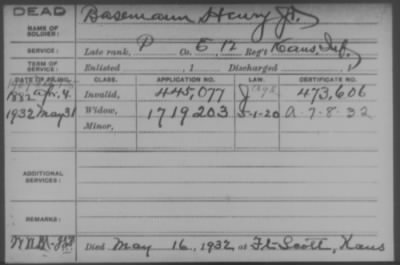 DEAD
NAME OF SOLDIER: Basemann Henry Jr.
SERVICE: Late rank, P Co. E 12 Reg't Kans Inf.
TERM OF SERVICE: Enlisted , 1 Discharged , 1
DATE OF FILING. CLASS. APPLICATION NO. LAW. CERTIFICATE NO.
1882 Apr. 4 Invalid, 445,077 473,606
1932 May 31 Widow, 1719203 5-1-20 A-7-8-32
Minor,
ADDITIONAL SERVICES:
REMARKS:
Died May 16, 1932 at Ft. Scott, Kans